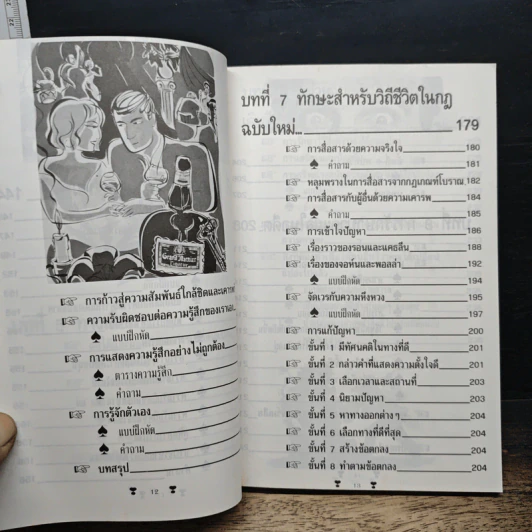 Grand Marnier
การก้าวสู่ความสัมพันธ์ใกล้ชิดและเคารพ
ความรับผิดชอบต่อความรู้สึกของเราเอง
แบบฝึกหัด
การแสดงความรู้สึกอย่างไม่ถูกต้อง
ตารางความรู้สึก
คำถาม
การรู้จักตัวเอง
แบบฝึกหัด
คำถาม
บทสรุป
12
บทที่ 7 ทักษะสำหรับวิถีชีวิตในกฎ
ฉบับใหม่... 179
การสื่อสารด้วยความจริงใจ 180
คำถาม 181
หลุมพรางในการสื่อสารจากกฎเกณฑ์โบราณ 182
การสื่อสารกับผู้อื่นด้วยความเคารพ 184
คำถาม 185
การเข้าใจปัญหา 186
เรื่องราวของรอนและแคธลีน 188
เรื่องของจอห์นและพอลล่า 192
แบบฝึกหัด 194
จัดเวรกับความหึงหวง 195
แบบฝึกหัด 197
การแก้ปัญหา 200
ขั้นที่ 1 มีทัศนคติในทางที่ดี 201
ขั้นที่ 2 กล่าวคำที่แสดงความตั้งใจดี 201
ขั้นที่ 3 เลือกเวลาและสถานที่ 203
ขั้นที่ 4 นิยามปัญหา 203
ขั้นที่ 5 หาทางออกต่างๆ 204
ขั้นที่ 6 เลือกทางที่ดีที่สุด 204
ขั้นที่ 7 สร้างข้อตกลง 204
ขั้นที่ 8 ทำตามข้อตกลง 204
13